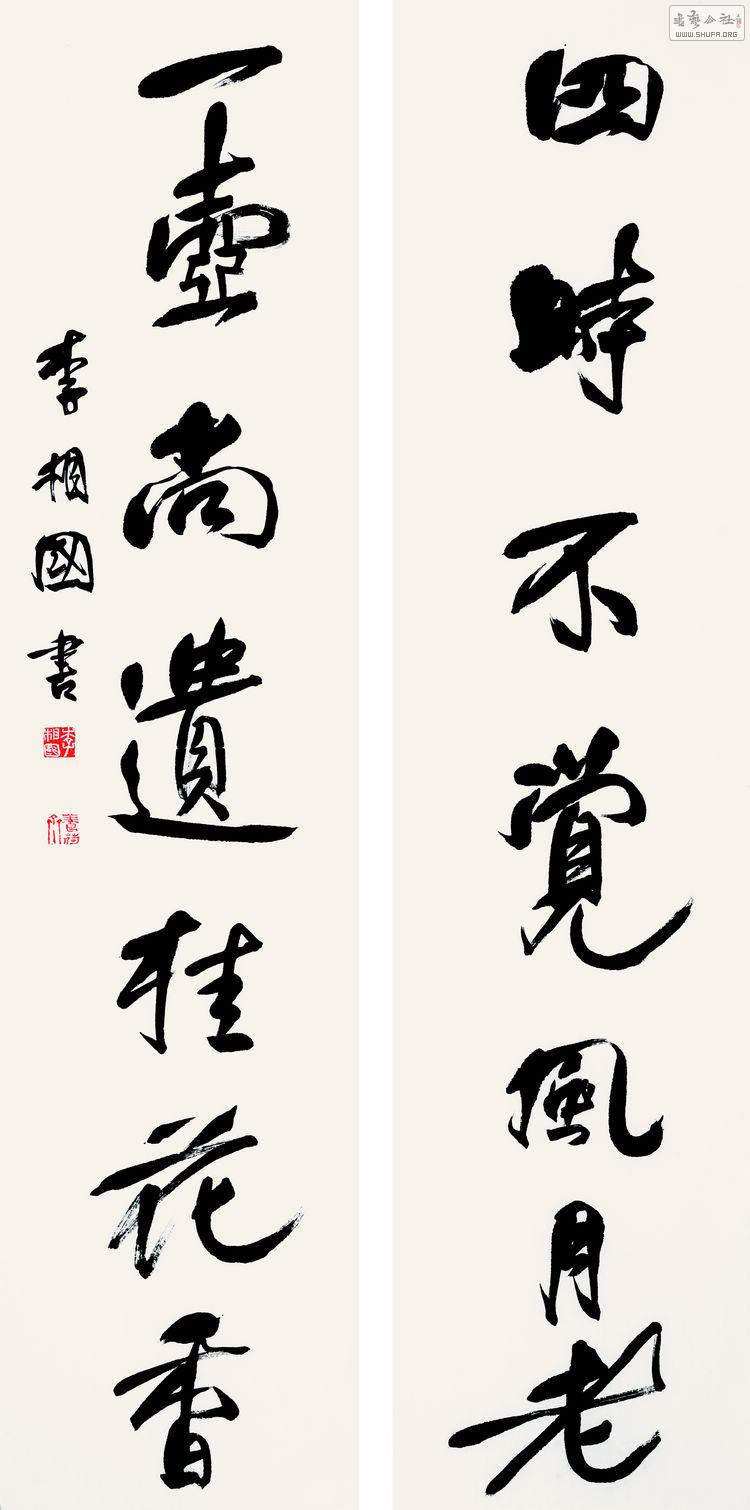 四時不覺風月老
一壺尚遺桂花香
李相國書
李相國
WWW.SHUFA.ORG